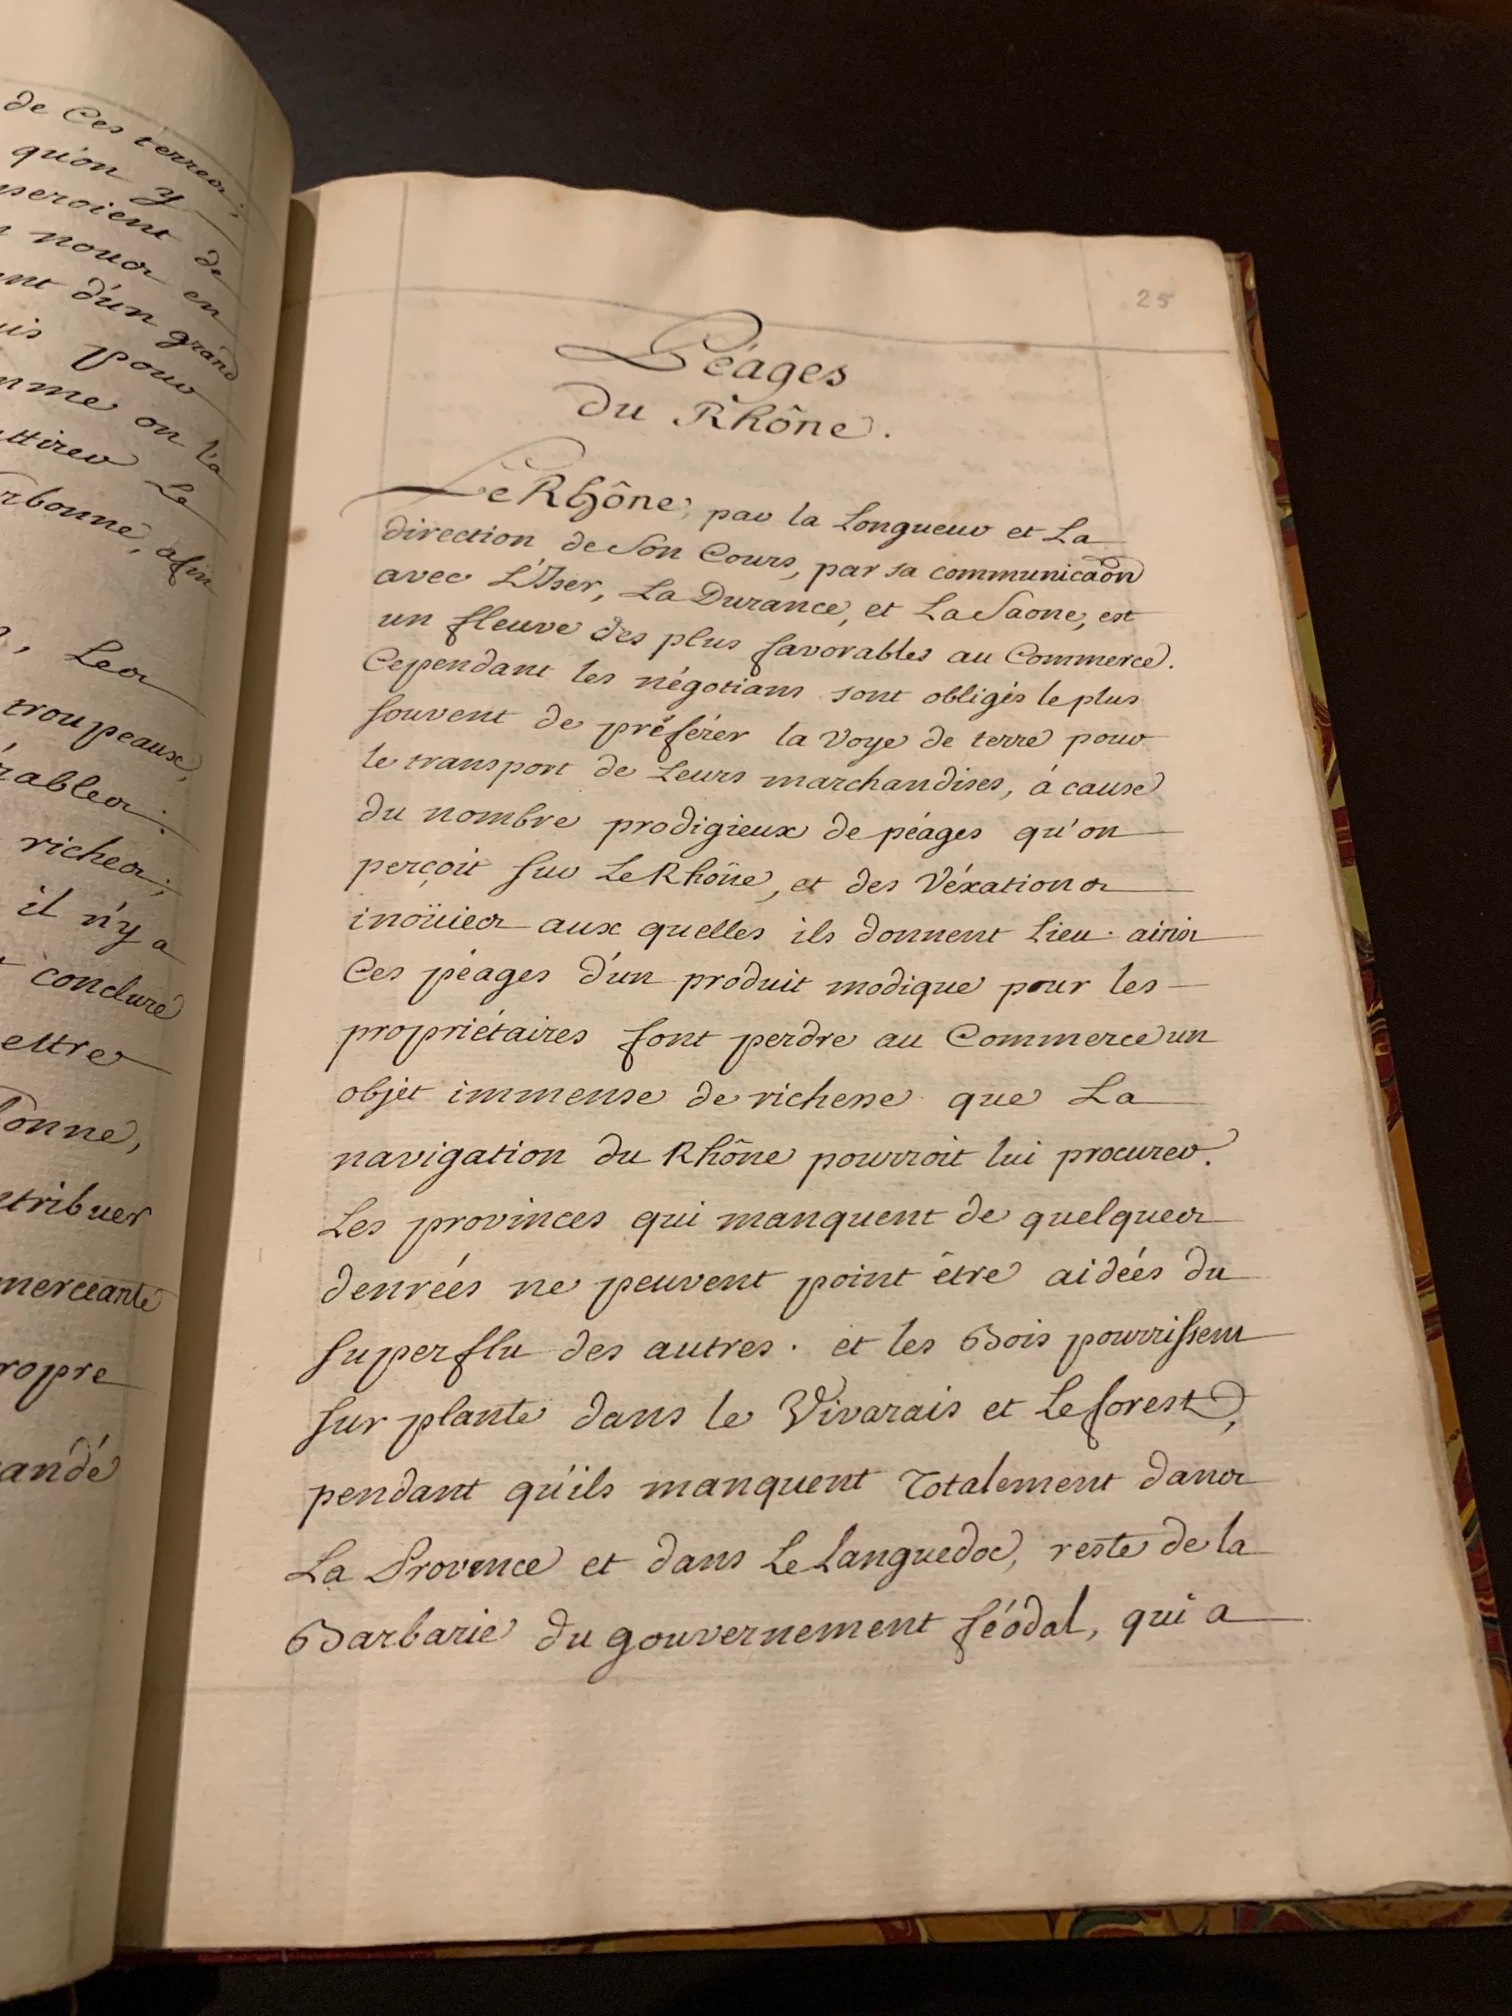 de Ces terres;
qu'on y
de
nous en
d'un grand
pour
on l'a
Le
afin
Les
troupeaux,
riches;
il n'y a
conclure
propre
25
Péages
du Rhône.
Le Rhône, par la Longueur et La
direction de Son Cours, par sa communicaõn
avec L'Iser, La Durance, et La Saone, est
un fleuve des plus favorables au Commerce.
Cependant les négotians sont obligés le plus
souvent de préférer la Voye de terre pour
le transport de Leurs marchandises, à cause
du nombre prodigieux de péages qu'on
perçoit sur Le Rhône, et des Véxations
inoüies aux quelles ils donnent Lieu. ainsi
Ces péages d'un produit modique pour les
propriétaires font perdre au Commerce un
objet immense de richesse que La
navigation du Rhône pourroit lui procurer.
Les provinces qui manquent de quelques
denrées ne peuvent point être aidées du
superflu des autres. et les Bois pourrissent
sur plante dans le Vivarais et Le forest,
pendant qu'ils manquent Totalement dans
La Provence et dans Le Languedoc, reste de la
Barbarie du gouvernement féodal, qui a